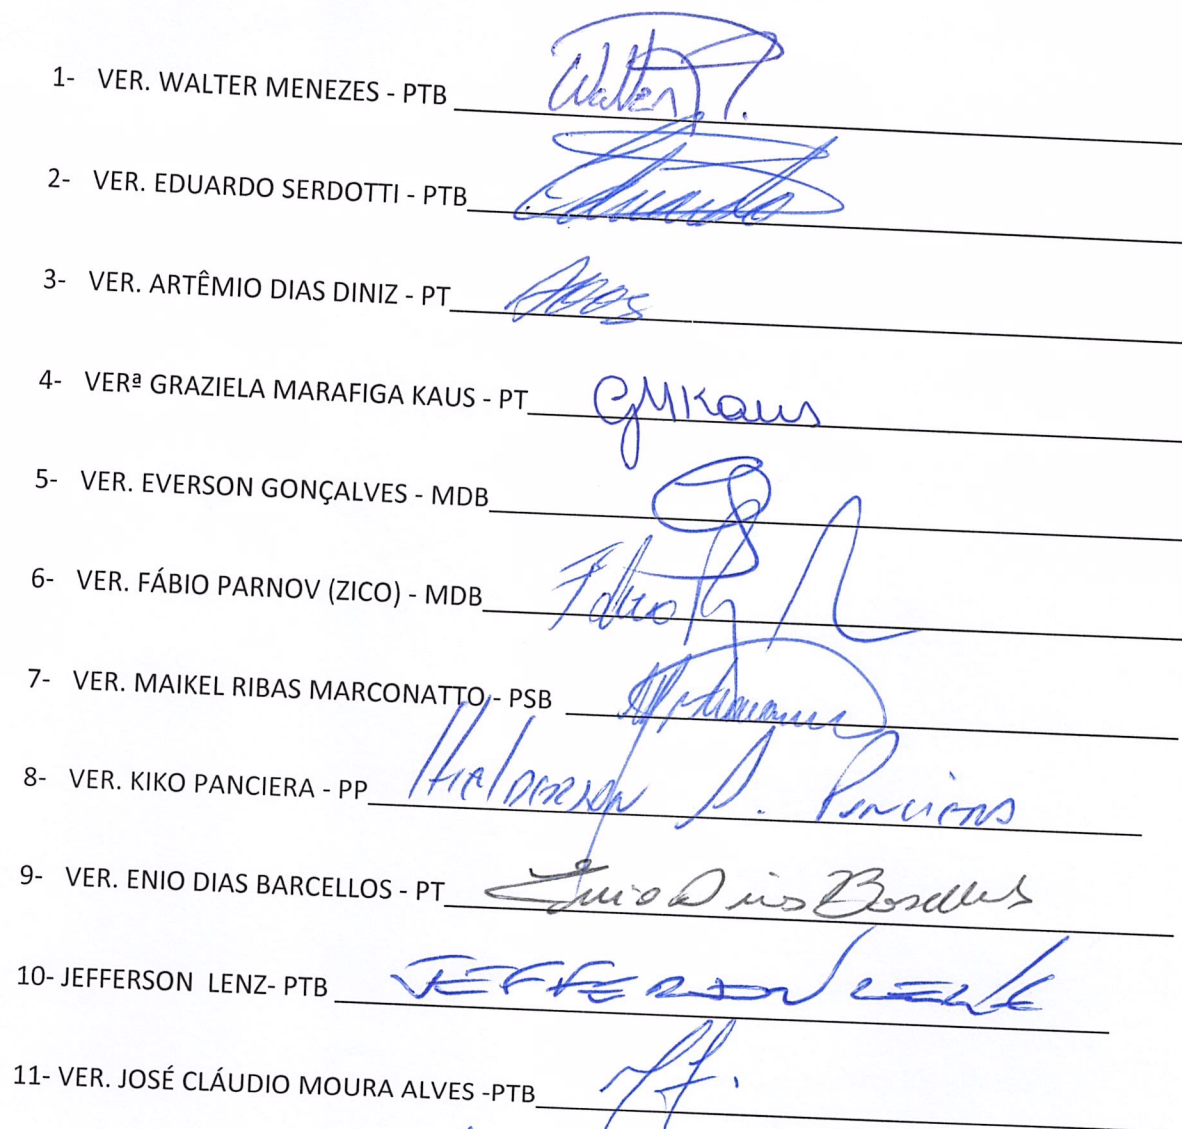 1- VER. WALTER MENEZES - PTB Walter
2- VER. EDUARDO SERDOTTI - PTB Eduardo
3- VER. ARTÊMIO DIAS DINIZ - PT
4- VERª GRAZIELA MARAFIGA KAUS - PT GMKaus
5- VER. EVERSON GONÇALVES - MDB
6- VER. FÁBIO PARNOV (ZICO) - MDB
7- VER. MAIKEL RIBAS MARCONATTO - PSB
8- VER. KIKO PANCIERA - PP
9- VER. ENIO DIAS BARCELLOS - PT Enio Dias Barcellos
10- JEFFERSON LENZ- PTB JEFFERSON LENZ
11- VER. JOSÉ CLÁUDIO MOURA ALVES -PTB